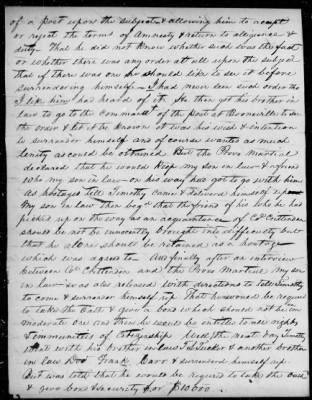 of a post upon the subject & allowing him to accept
or reject the terms of Amnesty & return to allegiance &
duty. That he did not know whether such was the fact
or whether there was any order at all upon the subject
that if there was one he should like to see it before
surrendering himself — I had never seen such order tho
I like him had heard of it. He then got his brother in
law to go to the Commandt of the post at Boonville to see
the order & let it be known it was his wish & intention
to surrender himself and of course wanted as much
lenity as could be obtained. But the Provo Martial
declared that he would keep my son in law & a friend
who my son in law on his way had got to go with him
as hostages till Timothy came & delivered himself up
My son in law then begd that the friend of his who he had
picked up on the way as an acquaintance of Col Crittenden
should be not be innocently brought into difficulty but
that he alone should be retained as a hostage
which was agreed to. And finally after an interview
between Col Crittenden and the Provo Martial my son
in law was also released with directions to tell Timothy
to come & surrender himself up. That he would be required
to take the Oath & give a bond which should not be an
moderate one and then he would be entitled to all rights
& communities of citizenship. Well the next day Timothy
went with his brother in law & another brother
in law Frank Carr & surrendered himself up
But was told that he would be required to take the Oath
& give bond & security for $10,000